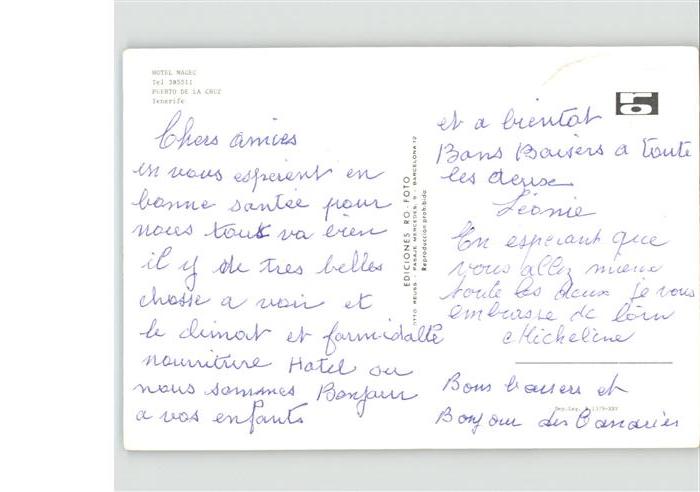 HOTEL MAGEC
Tel 385511
PUERTO DE LA CRUZ
Tenerife
Chers amies
en vous esperent en
bonne santée pour
nous tout va bien
il y de tres belles
chosse a voir et
le climat et formidable
nourriture Hotel ou
nous sommes Bonjour
a vos enfants
EDICIONES RO-FOTO
OTTO REUSS - PASAJE MERCEDES, 9 - BARCELONA-12
Reproducción prohibida
ro
et a bientot
Bons Baisers a toute
les deuse
Léonie
En esperant que
vous allez mieux
toute les deux je vous
embrasse de loin
Micheline
Bons baisers et
Bonjour des Canaries